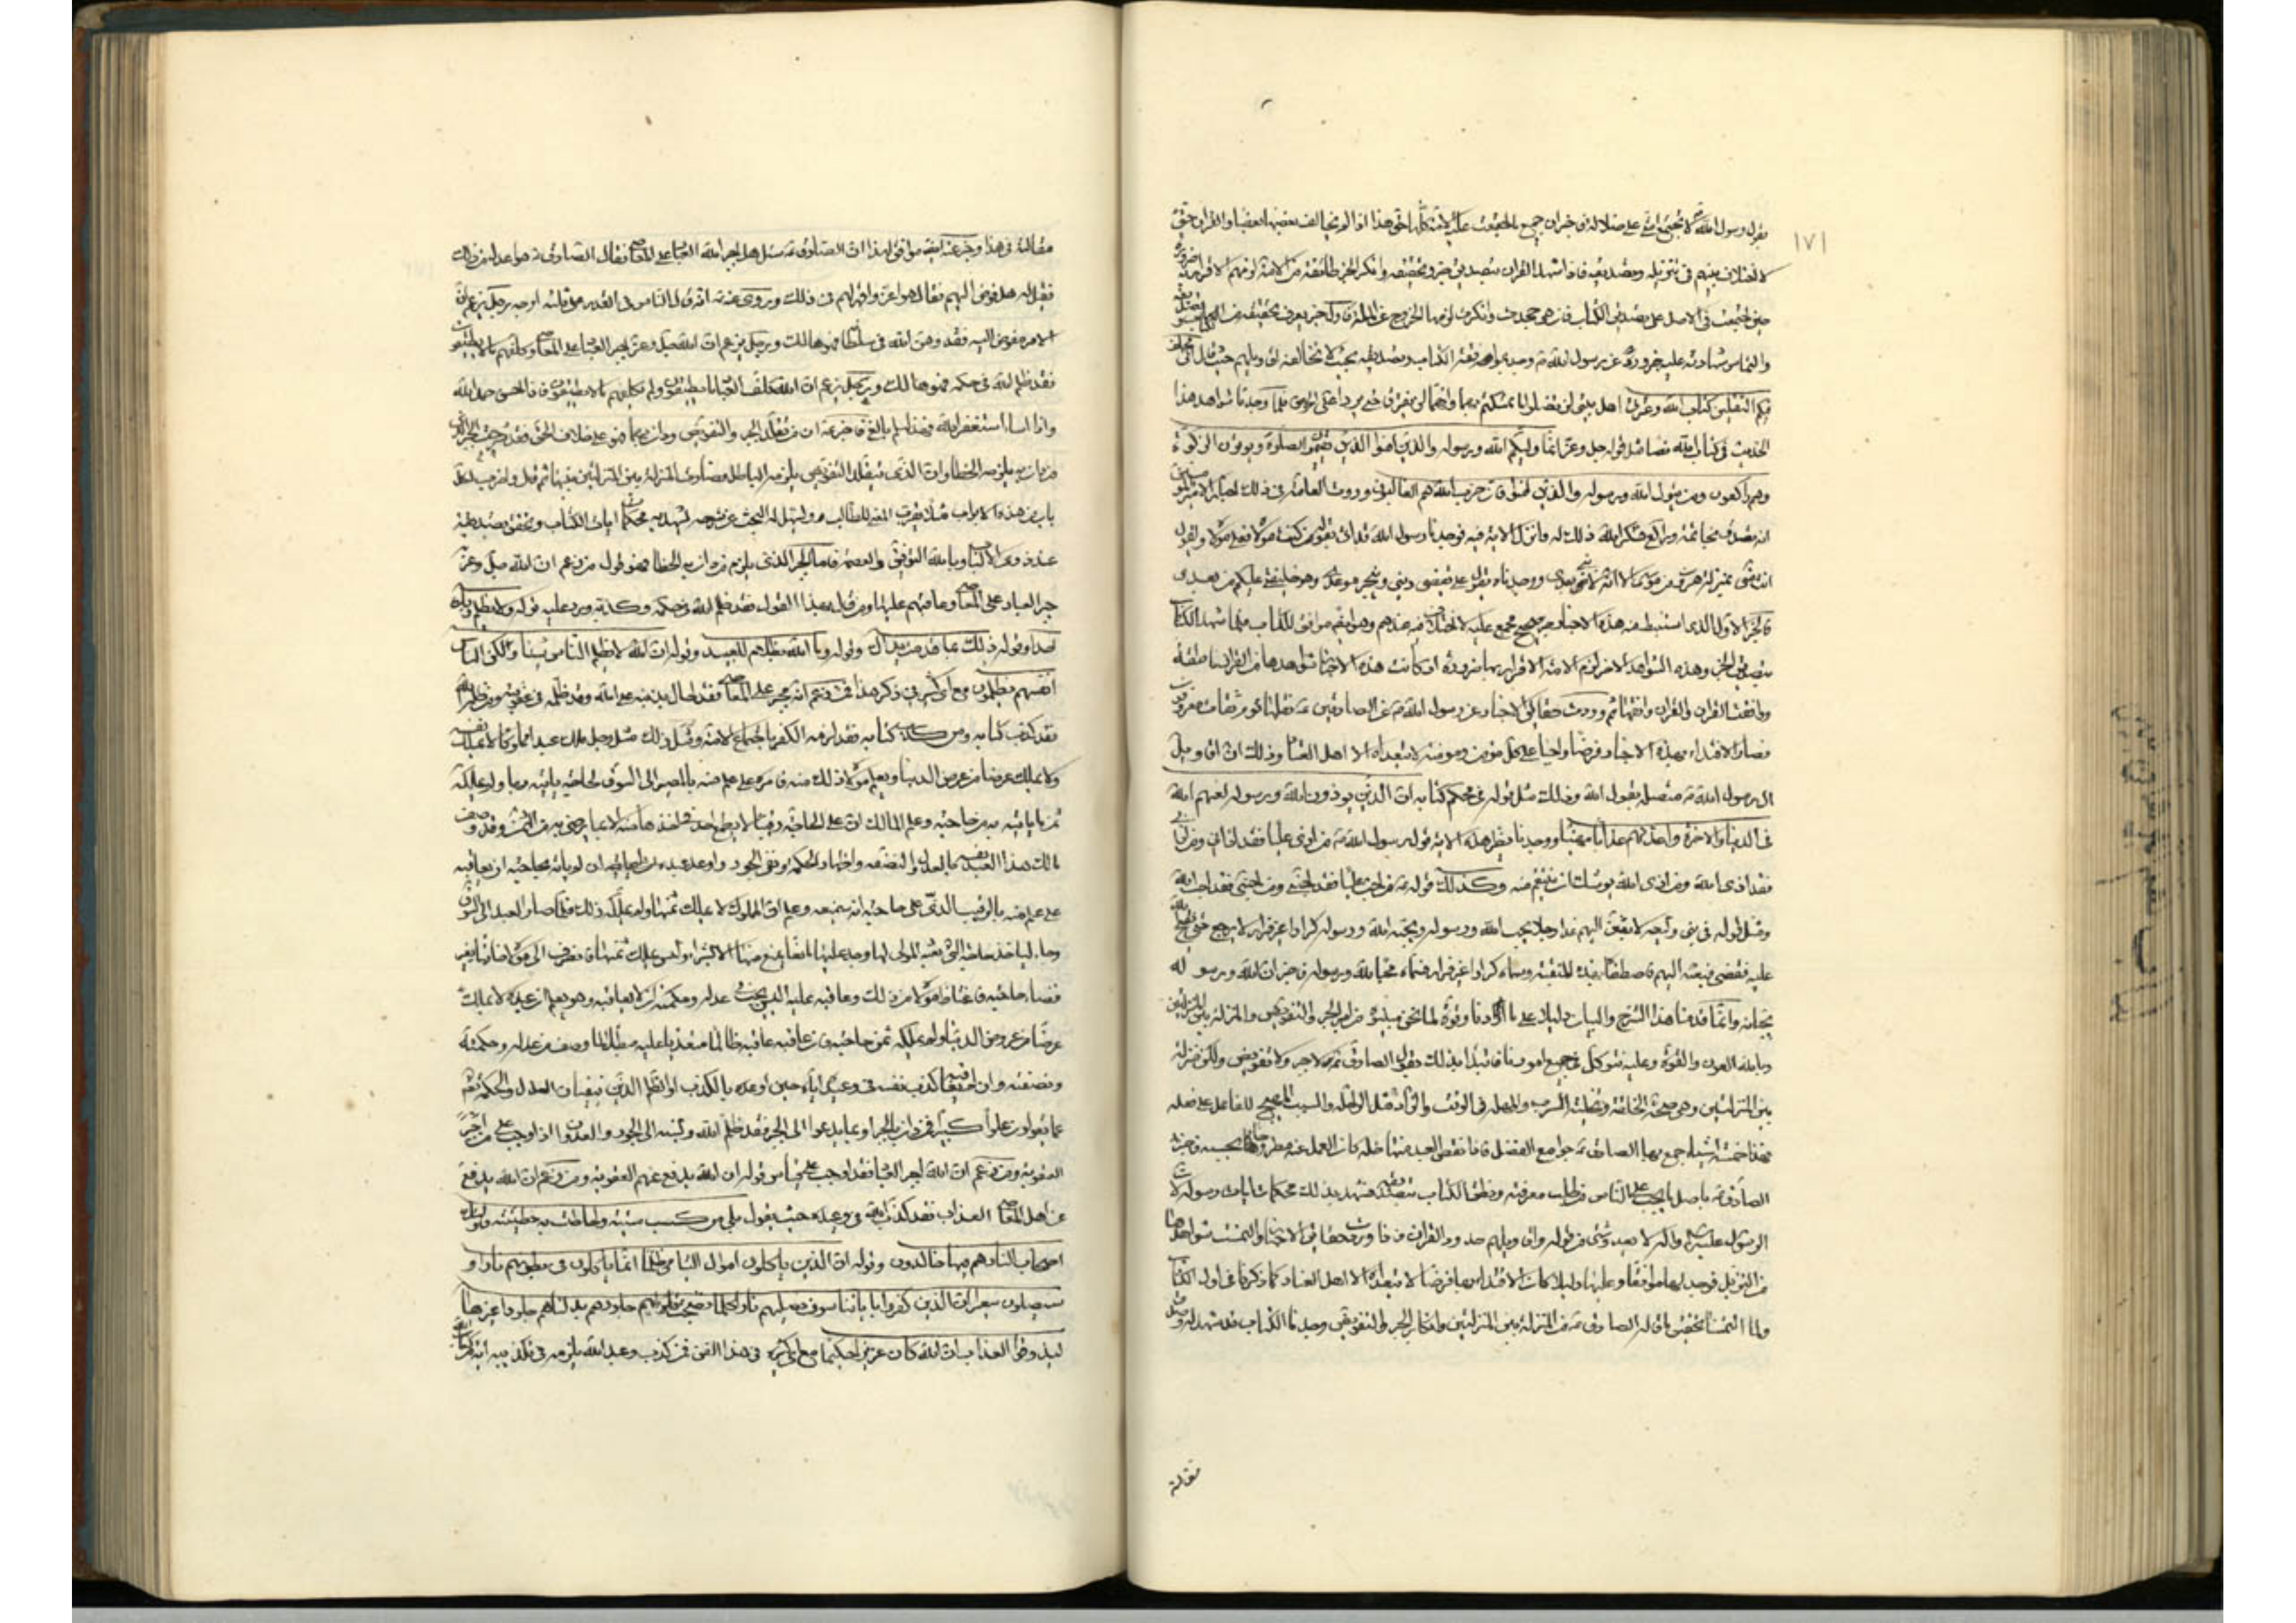 ١٧١
بقول رسول الله ص لا تجتمع امتي على ضلالة فاخبر ان جميع ما اجتمعت عليه الامة كلها حق هذا اذا لم يخالف بعضها بعضا والقران حق
لا اختلاف بينهم في تنزيله وتصديقه فاذا شهد القران بتصديق خبر وتحقيقه وانكر الخبر طائفة من الامة لزمهم الاقرار به ضرورة
حين اجتمعت في الاصل على تصديق الكتاب فان هي جحدت وانكرت لزمها الخروج عن الملة فاول خبر يعرف تحقيقه من الكتاب وتصديقه
والتماس شهادته عليه خبر ورد عن رسول الله ص ووجد بموافقة الكتاب وتصديقه بحيث لا تخالفه اقاويلهم حيث قال اني مخلف
فيكم الثقلين كتاب الله وعترتي اهل بيتي لن تضلوا ما تمسكتم بهما وانهما لن يفترقا حتى يردا على الحوض فلما وجدنا شواهد هذا
الحديث في كتاب الله نصا مثل قوله جل وعز انما وليكم الله ورسوله والذين امنوا الذين يقيمون الصلوة ويؤتون الزكوة
وهم راكعون ومن يتول الله ورسوله والذين امنوا فان حزب الله هم الغالبون وروت العامة في ذلك اخبارا لامير المؤمنين
انه تصدق بخاتمه وهو راكع فشكر الله ذلك له وانزل الاية فيه فوجدنا رسول الله قد اتى بقوله من كنت مولاه فعلي مولاه وبقوله
انت مني بمنزلة هرون من موسى الا انه لا نبي بعدي ووجدناه يقول علي يقضي ديني وينجز موعدي وهو خليفتي عليكم من بعدي
فالخبر الاول الذي استنبطت منه هذه الاخبار خبر صحيح مجمع عليه لا اختلاف فيه عندهم وهو ايضا موافق للكتاب فلما شهد الكتاب
بتصديق الخبر وهذه الشواهد الاخر لزم الامة الاقرار بها ضرورة اذ كانت هذه الاخبار شواهدها من القران ناطقة
ووافقت القران والقران وافقها ثم وردت حقايق الاخبار عن رسول الله ص عن الصادقين ع نقلها قوم ثقات معروفون
فصار الاقتداء بهذه الاخبار فرضا واجبا على كل مؤمن ومؤمنة لا يتعداه الا اهل العناد وذلك ان اقاويل
ال رسول الله ص متصلة بقول الله وذلك مثل قوله في محكم كتابه ان الذين يؤذون الله ورسوله لعنهم الله
في الدنيا والاخرة واعد لهم عذابا مهينا ووجدنا نظير هذه الاية قول رسول الله ص من اذى عليا فقد اذاني ومن اذاني
فقد اذى الله ومن اذى الله يوشك ان ينتقم منه وكذلك قوله ص من احب عليا فقد احبني ومن احبني فقد احب الله
ومثل قوله في بني وليعة لابعثن اليهم غدا رجلا يحب الله ورسوله ويحبه الله ورسوله كرارا غير فرار لا يرجع حتى يفتح الله
عليه فقضى بالفتح قبل التوجيه
عليه وسماه كرارا غير فرار فسماه محبا لله ورسوله فاخبر ان الله ورسوله
يحبانه وانما قدمنا هذا الشرح والبيان دليلا على ما اردنا وقوة لما نحن مبينوه من امر الجبر والتفويض والمنزلة بين المنزلتين
وبالله العون والقوة وعليه نتوكل في جميع امورنا فانا نبدا من ذلك بقول الصادق ع لا جبر ولا تفويض ولكن منزلة
بين المنزلتين وهي صحة الخلقة وتخلية السرب والمهلة في الوقت والزاد مثل الراحلة والسبب المهيج للفاعل على فعله
فهذه خمسة اشياء جمع بها الصادق ع جوامع الفضل فاذا نقص العبد منها خلة كان العمل عنه مطروحا بحسبه فاخبر
الصادق ع باصل ما يجب على الناس من طلب معرفته ونطق الكتاب بتصديقه فشهد بذلك محكمات ايات رسوله لان
الرسول عليه السلام واله لا يعدو شيء من قوله واقاويلهم حدود القران فاذا وردت حقايق الاخبار والتمست شواهدها
من التنزيل فوجد لها موافقا وعليها دليلا كان الاقتداء بها فرضا لا يتعداه الا اهل العناد كما ذكرنا في اول الكتاب
ولما التمسنا تحقيق ما قاله الصادق ع من المنزلة بين المنزلتين وانكاره الجبر والتفويض وجدنا الكتاب قد شهد له وصدق
مقالته
مقالته في هذا وخبر عنه ايضا موافق لهذا ان الصادق ع سئل هل اجبر الله العباد على المعاصي فقال الصادق ع هو اعدل من ذلك
فقيل له فهل فوض اليهم فقال هو اعز واقهر لهم من ذلك وروي عنه انه قال الناس في القدر على ثلثة اوجه رجل يزعم ان
الامر مفوض اليه فقد وهن الله في سلطانه فهو هالك ورجل يزعم ان الله جل وعز اجبر العباد على المعاصي وكلفهم ما لا يطيقون
فقد ظلم الله في حكمه فهو هالك ورجل يزعم ان الله كلف العباد ما يطيقون ولم يكلفهم ما لا يطيقون فاذا احسن حمد الله
واذا اساء استغفر الله فهذا مسلم بالغ فاخبر ع ان من تقلد الجبر والتفويض ودان بهما فهو على خلاف الحق فقد شرحت الجبر الذي
من دان به يلزمه الخطا وان الذي يتقلد التفويض يلزمه الباطل فصارت المنزلة بين المنزلتين بينهما ثم قال واضرب لكل
باب من هذه الابواب مثلا يقرب المعنى للطالب ويسهل له البحث عن شرحه تشهد به محكمات ايات الكتاب وتحقق تصديقه
عند ذوي الالباب وبالله التوفيق والعصمة فاما الجبر الذي يلزم من دان به الخطا فهو قول من زعم ان الله جل وعز
جبر العباد على المعاصي وعاقبهم عليها ومن قال بهذا القول فقد ظلم الله في حكمه وكذبه ورد عليه قوله ولا يظلم ربك
احدا وقوله ذلك بما قدمت يداك وقوله وما الله بظلام للعبيد وقوله ان الله لا يظلم الناس شيئا ولكن الناس
انفسهم يظلمون مع اي كثيرة في ذكر هذا فمن زعم انه مجبر على المعاصي فقد احال بذنبه على الله وقد ظلمه في عقوبته ومن ظلم الله
فقد كذب كتابه ومن كذب كتابه فقد لزمه الكفر باجتماع الامة ومثل ذلك مثل رجل ملك عبدا مملوكا لا يملك نفسه
ولا يملك عرضا من عرض الدنيا ويعلم مولاه ذلك منه فامره على علم منه بالمصير الى السوق لحاجة ياتيه بها ولم يملكه
ثمن ما ياتيه به من حاجته وعلم المالك ان على الحاجة رقيبا لا يطمع احد في اخذها منه الا بما يرضى به من الثمن وقد وصف
مالك هذا العبد نفسه بالعدل والنصفة واظهار الحكمة ونفي الجور واوعد عبده ان لم ياته بحاجته ان يعاقبه
على علم منه بالرقيب الذي على حاجته انه سيمنعه وعلم ان المملوك لا يملك ثمنها ولم يملكه ذلك فلما صار العبد الى السوق
وجاء لياخذ حاجته التي بعثه المولى لها وجد عليها مانعا يمنع منها الا بشراء وليس يملك ثمنها فانصرف الى مولاه خائبا بغير
قضاء حاجته فاغتاظ مولاه من ذلك وعاقبه عليه اليس يجب في عدله وحكمته ان لا يعاقبه وهو يعلم ان عبده لا يملك
عرضا من عروض الدنيا ولم يملكه ثمن حاجته فان عاقبه عاقبه ظالما متعديا عليه مبطلا لما وصف من عدله وحكمته
ونصفته وان لم يعاقبه كذب نفسه في وعيده اياه حين اوعده بالكذب والظلم الذين ينفيان العدل والحكمة تعالى
عما يقولون علوا كبيرا فمن دان بالجبر او بما يدعو الى الجبر فقد ظلم الله ونسبه الى الجور والعدوان اذ اوجب على من اجبره
العقوبة ومن زعم ان الله اجبر العباد فقد اوجب على قياس قوله ان الله يدفع عنهم العقوبة ومن زعم ان الله يدفع
عن اهل المعاصي العذاب فقد كذب الله في وعيده حيث يقول بلى من كسب سيئة واحاطت به خطيئته فاولئك
اصحاب النار هم فيها خالدون وقوله ان الذين ياكلون اموال اليتامى ظلما انما ياكلون في بطونهم نارا و
سيصلون سعيرا ان الذين كفروا باياتنا سوف نصليهم نارا كلما نضجت جلودهم بدلناهم جلودا غيرها
ليذوقوا العذاب ان الله كان عزيزا حكيما مع اي كثيرة في هذا الفن فمن كذب وعيد الله يلزمه في تكذيبه اية من كتاب الله